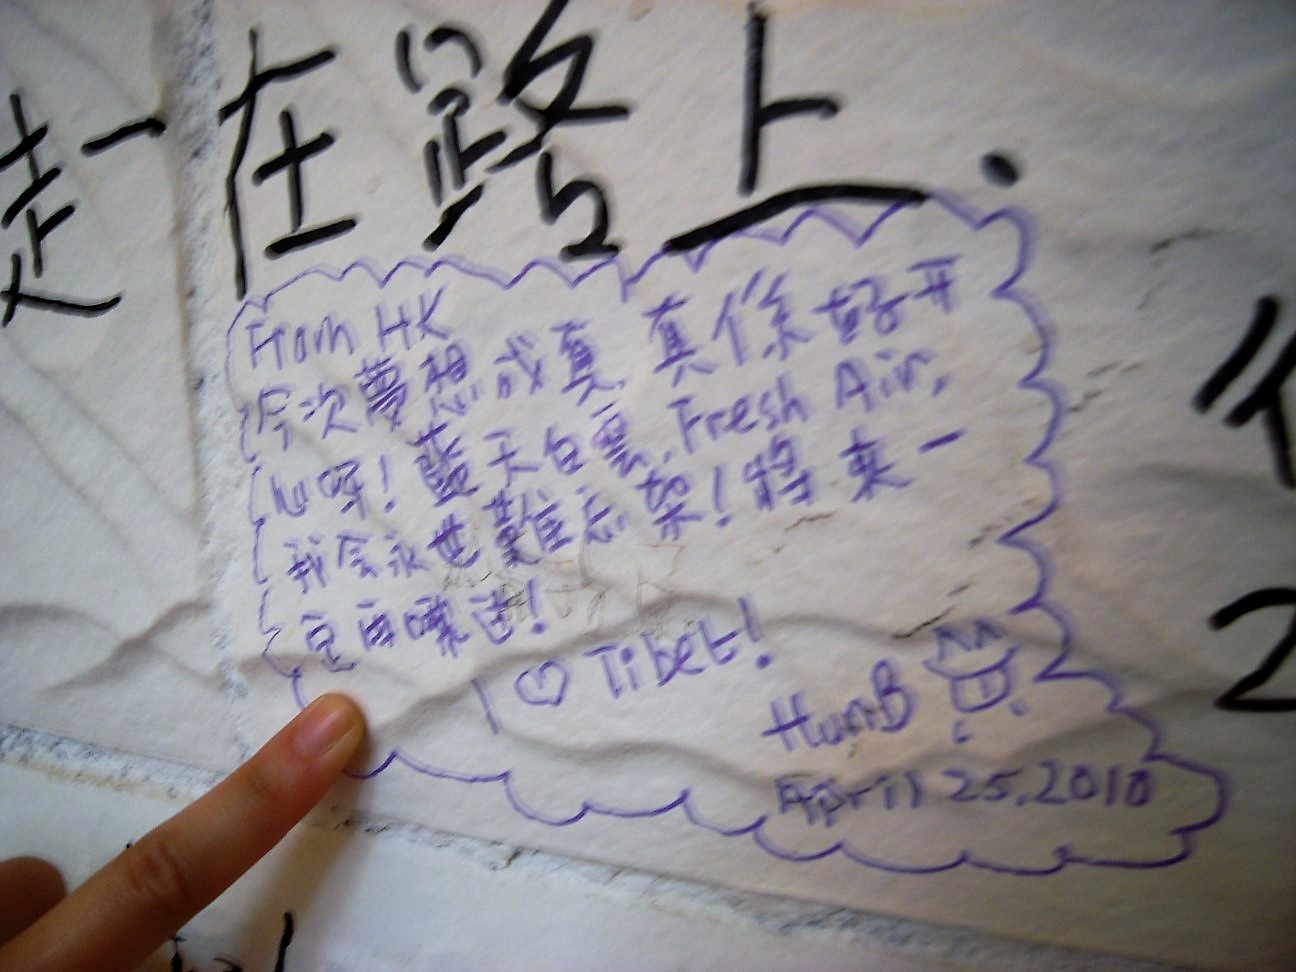 走在路上.
From HK
今次夢想成真,真係好開
心呀!藍天白雲,Fresh Air,
我会永世難忘架!將來一
定再嚟过!
I ♡ Tibet!
HumB
April 25,2010
2